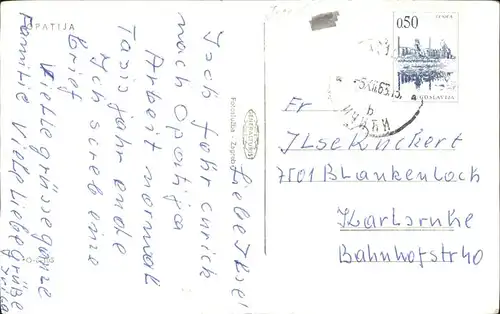 OPATIJA
Liebe Ilse!
Isch fahr zurick
nach Opatija
Arbeit normal
Taxis jahr ende
Ich screb eine
Brief
Vieble grüsse ganze
Familie Viele Liebe grüße
Fotoslužba - Zagreb
0,50
JUGOSLAVIJA
Fr
Ilse Künckert
7501 Blankenloch
Karlsruhe
Bahnhofstr 40